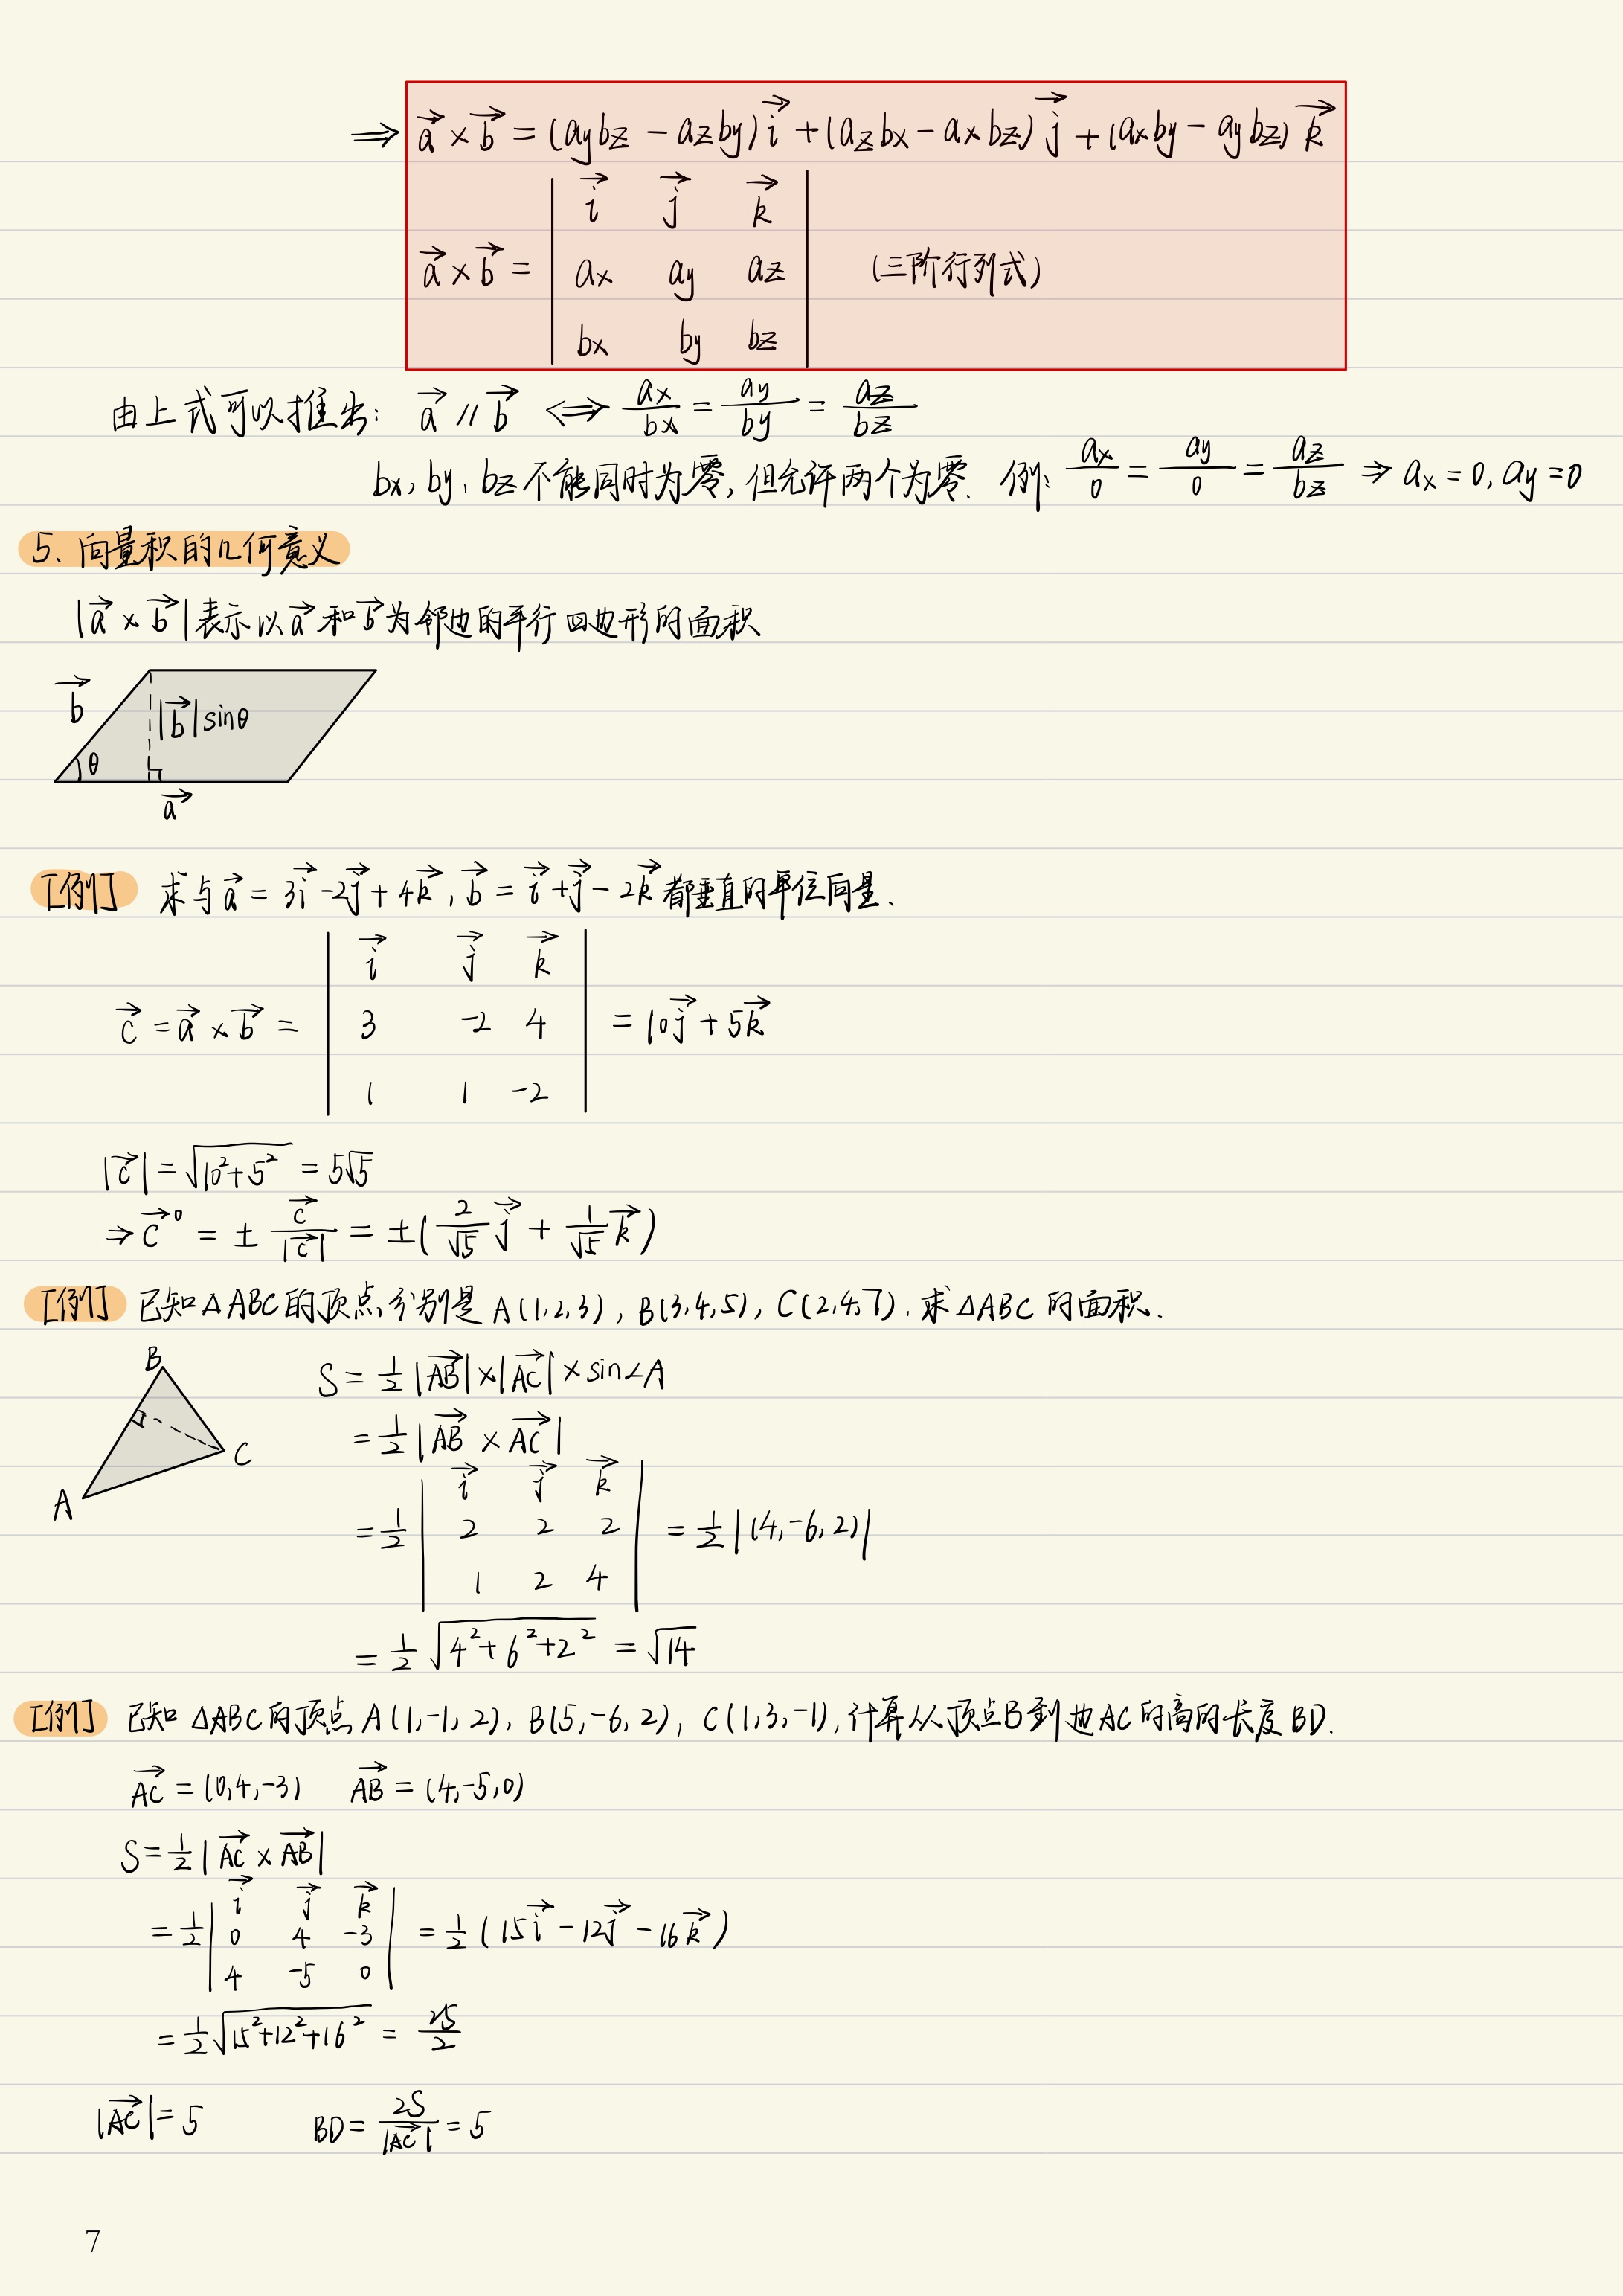 ⇒ a⃗ × b⃗ = (aybz - azby) i⃗ + (azbx - axbz) j⃗ + (axby - aybz) k⃗
a⃗ × b⃗ = | i⃗ j⃗ k⃗ |
| ax ay az | (三阶行列式)
| bx by bz |
由上式可以推出: a⃗ // b⃗ ⟺ ax/bx = ay/by = az/bz
bx, by, bz 不能同时为零, 但允许两个为零. 例: ax/0 = ay/0 = az/bz ⇒ ax = 0, ay = 0
5、向量积的几何意义
|a⃗ × b⃗| 表示以 a⃗ 和 b⃗ 为邻边的平行四边形的面积
b⃗ |b⃗| sinθ
θ
a⃗
[例] 求与 a⃗ = 3i⃗ - 2j⃗ + 4k⃗, b⃗ = i⃗ + j⃗ - 2k⃗ 都垂直的单位向量、
c⃗ = a⃗ × b⃗ = | i⃗ j⃗ k⃗ |
| 3 -2 4 | = 10j⃗ + 5k⃗
| 1 1 -2 |
|c⃗| = √(10² + 5²) = 5√5
⇒ c⃗° = ± c⃗/|c⃗| = ±(2/√5 j⃗ + 1/√5 k⃗)
[例] 已知△ABC的顶点分别是 A(1,2,3), B(3,4,5), C(2,4,7). 求△ABC的面积.
B
C
A
S = 1/2 |AB⃗| × |AC⃗| × sin∠A
= 1/2 |AB⃗ × AC⃗|
= 1/2 | i⃗ j⃗ k⃗ |
| 2 2 2 | = 1/2 |(4,-6,2)|
| 1 2 4 |
= 1/2 √(4² + 6² + 2²) = √14
[例] 已知 △ABC的顶点 A(1,-1,2), B(5,-6,2), C(1,3,-1), 计算从顶点B到边AC的高的长度BD.
AC⃗ = (0,4,-3) AB⃗ = (4,-5,0)
S = 1/2 |AC⃗ × AB⃗|
= 1/2 | i⃗ j⃗ k⃗ |
| 0 4 -3 | = 1/2 (15i⃗ - 12j⃗ - 16k⃗)
| 4 -5 0 |
= 1/2 √(15² + 12² + 16²) = 25/2
|AC⃗| = 5 BD = 2S/|AC⃗| = 5
7